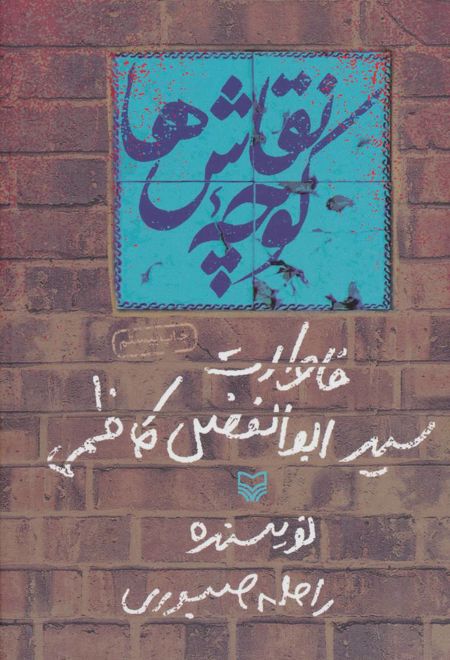 کوچه نقاش‌ها
چاپ بیستم
خاطرات
سید ابوالفضل کاظمی
نویسنده
راحله صبوری